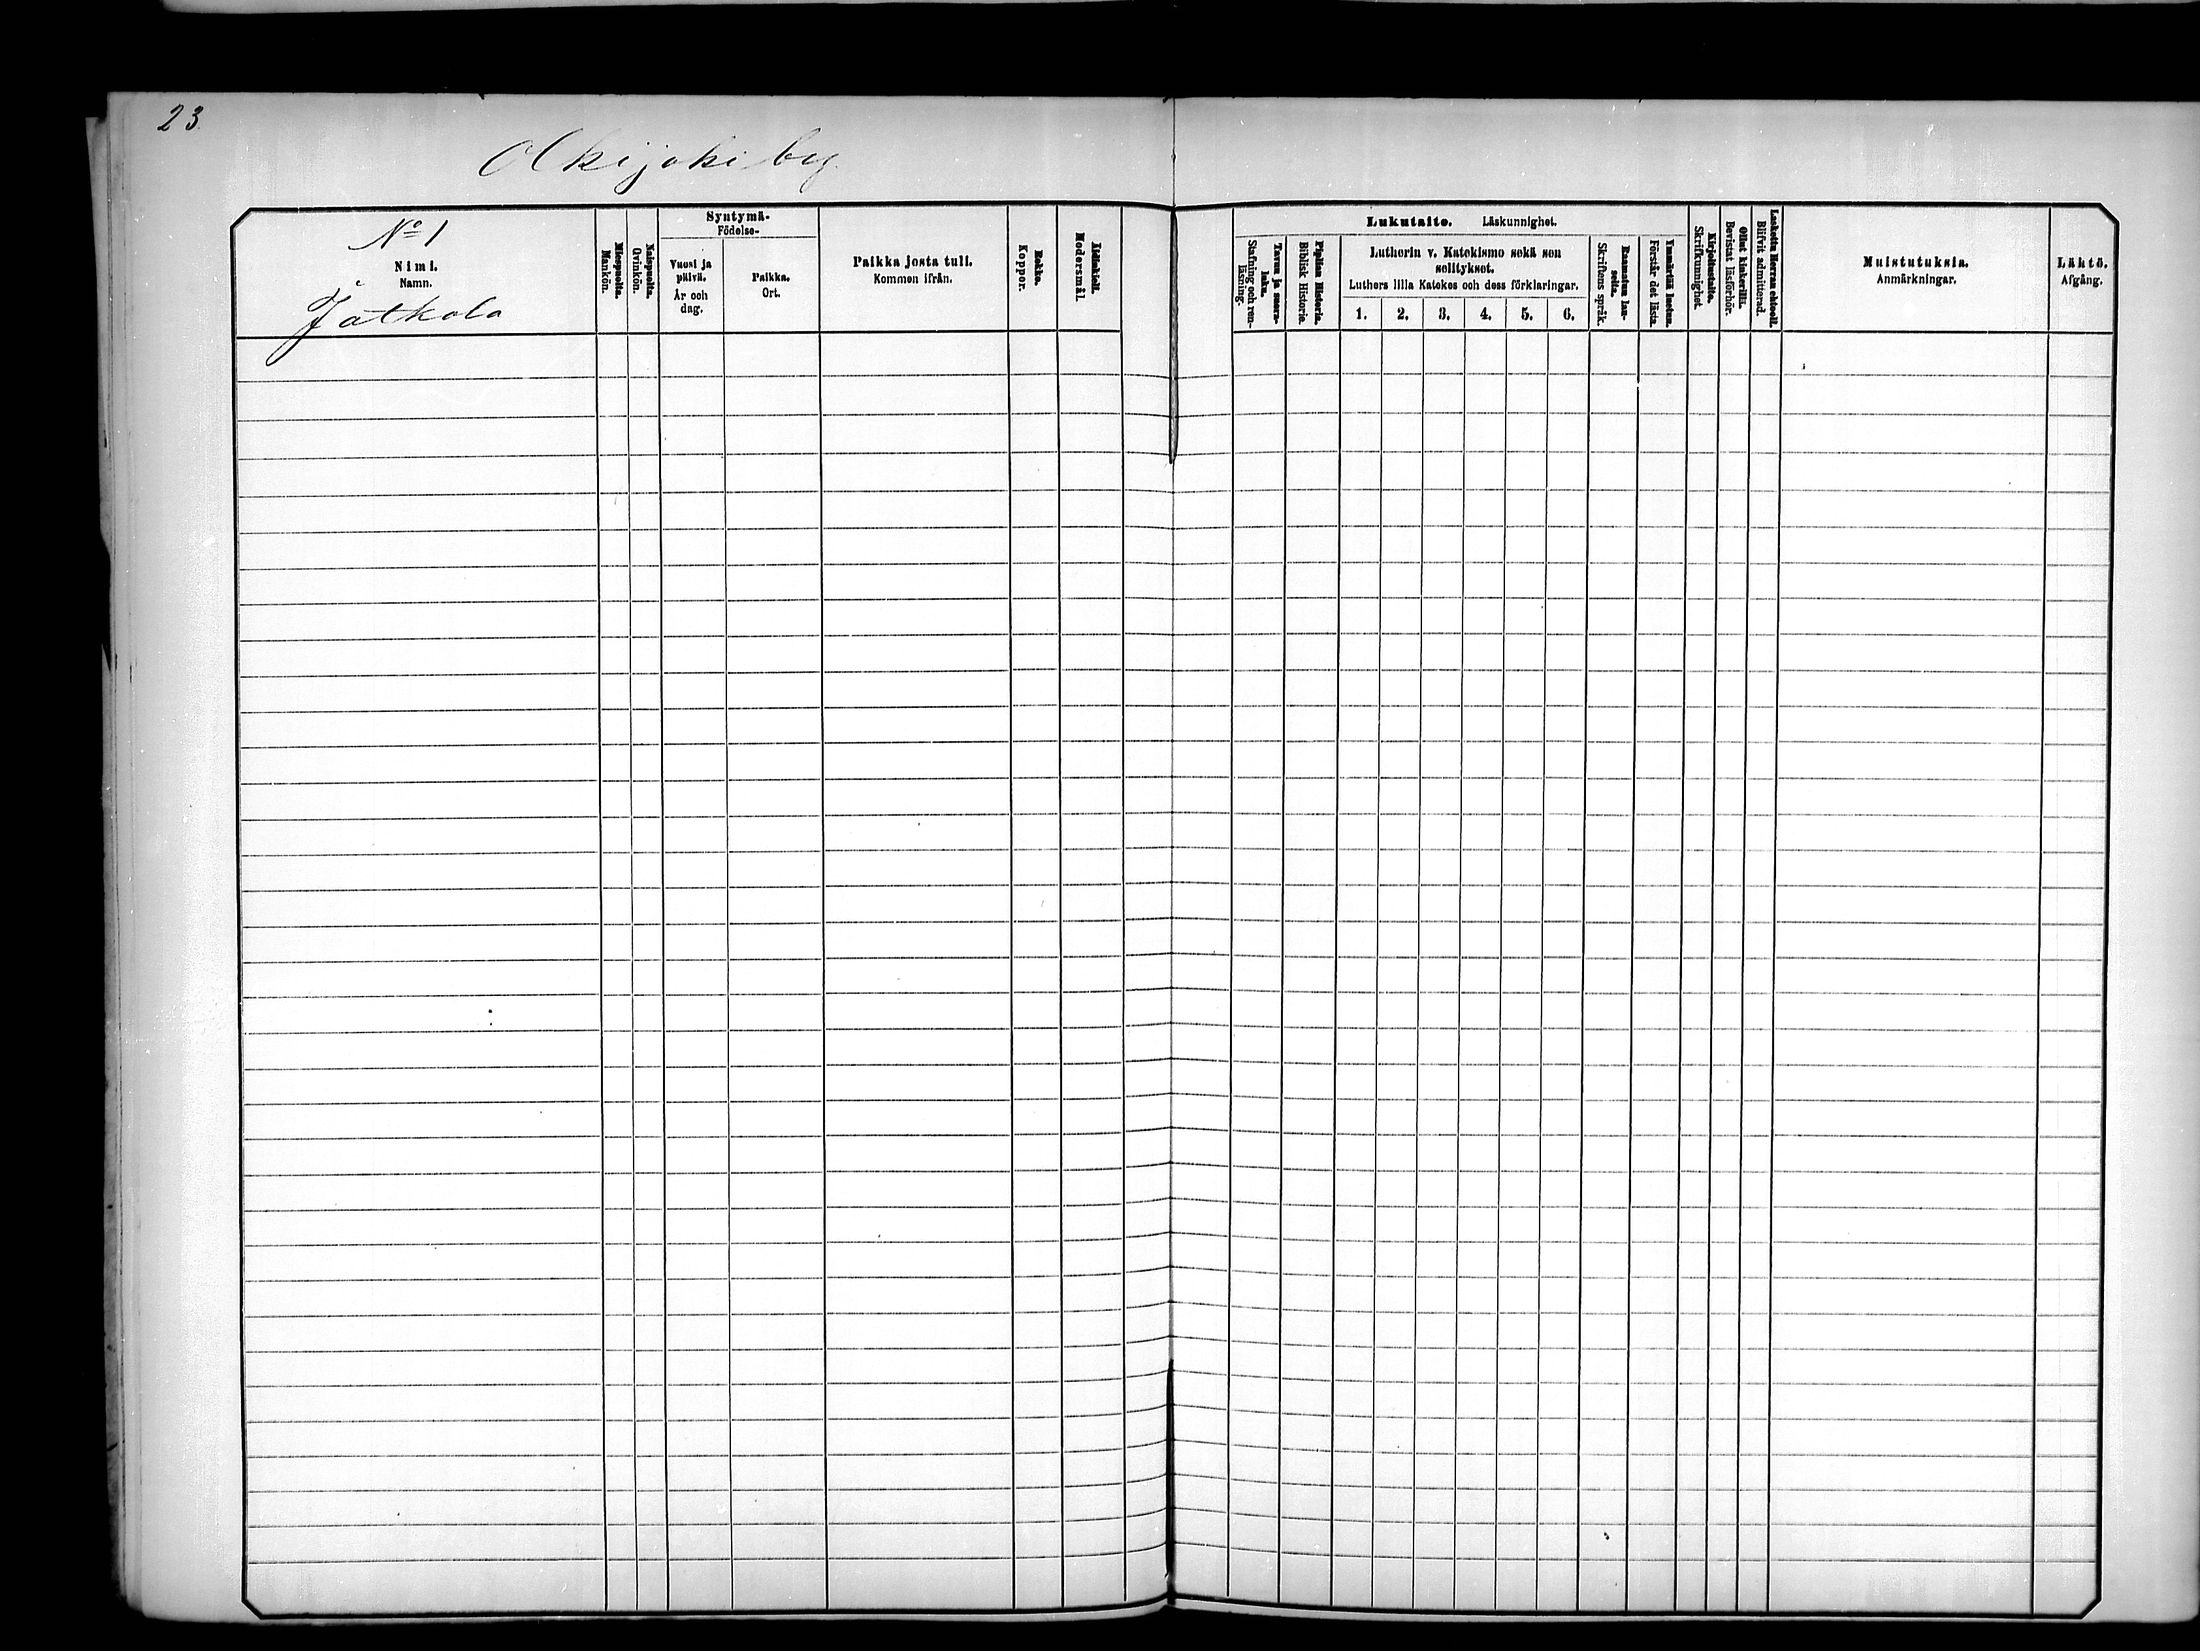 23
Olkijoki by
No 1
Nimi.
Namn.
Jatkola
Miespuolia.
Mankön.
Naispuolia.
Qvinkön.
Syntymä-
Födelse-
Vuosi ja
päivä.
År och
dag.
Paikka.
Ort.
Paikka josta tuli.
Kommen ifrån.
Rokko.
Koppor.
Äidinkieli.
Modersmål.
Lukutaito. Läskunnighet.
Tavuu ja suora-
luku.
Stafning och ren-
läsning.
Piplian Historia.
Biblisk Historie.
Lutherin v. Katekismo sekä sen
selitykset.
Luthers lilla Katekes och dess förklaringar.
1. 2. 3. 4. 5. 6.
Raamatun lau-
seita.
Skriftens språk.
Ymmärtää luetun.
Förstår det lästa.
Kirjoitustaito.
Skrifkunnighet.
Ollut kinkerillä.
Bevistat läsförhör.
Laskettu Herran ehtool.
Blifvit admitterad.
Muistutuksia.
Anmärkningar.
Lähtö.
Afgång.